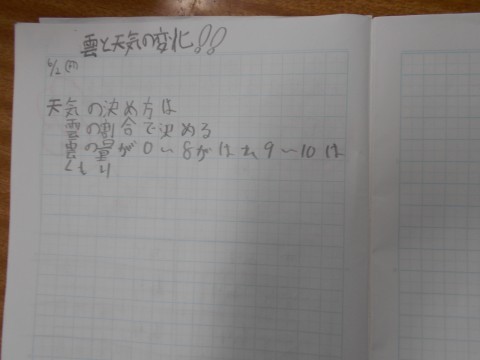 雲と天気の変化!!
天気の決め方は
雲の割合で決める
雲の量が0〜8がはれ9〜10は
くもり